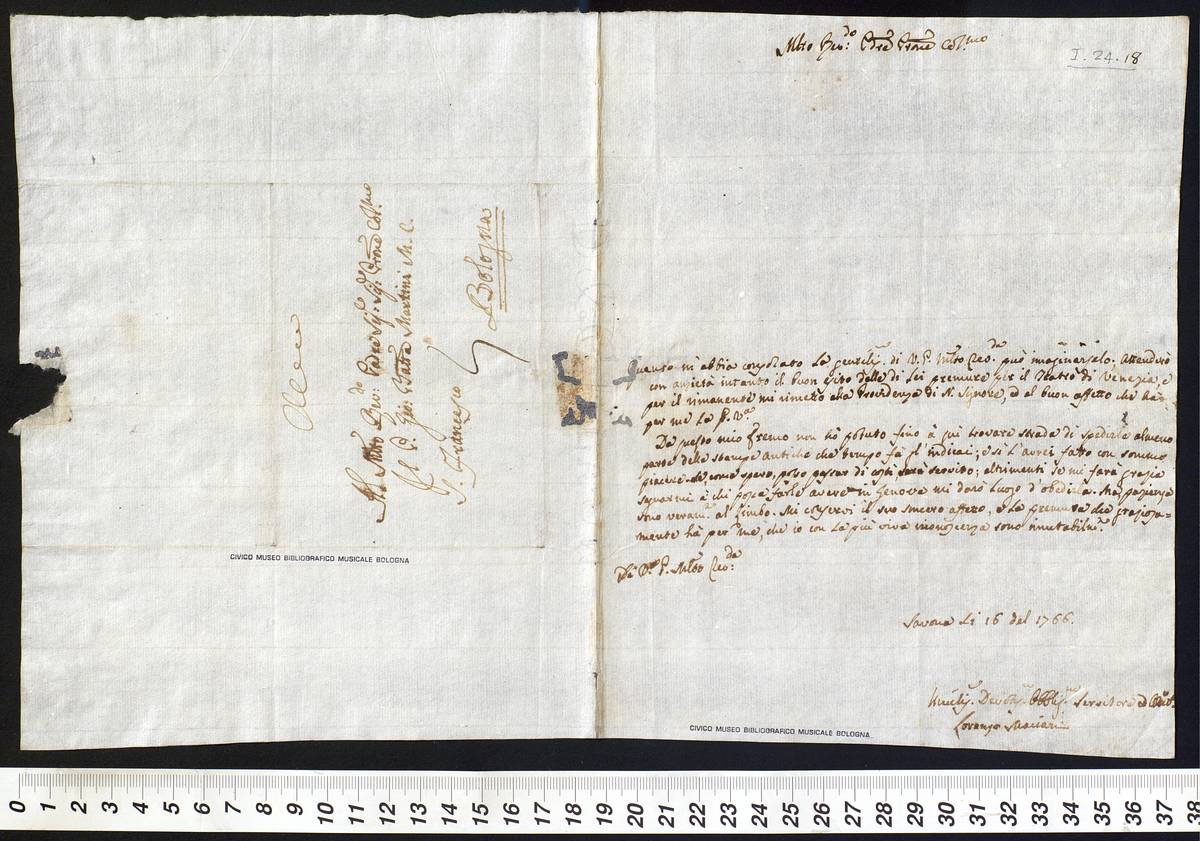 Mlto Rev:do Pdre Prone Col:mo
I. 24. 18
Quanto mi abbia consolato la gentiliz. di V. P. Mlto Rev.da può imaginarselo. Attenderò
con anzietà intanto il buon esito delle di Lei premure per il Teatro di Venezia, e
per il rimanente mi rimetto alla Providenza di N. Signore, ed al buon affetto che ha
per me la P. V.ra
Da questo mio Fremo non hò potuto fino à qui trovare strada di spedirle almeno
parte delle stampe antiche che tempo fà gl'indicai; e sì l'avrei fatto con sommo
piacere. Se, come spero, posso passar di costì sarà servito; altrimenti se mi farà grazia
segnarmi à chi possa farle avere in Genova mi darà luogo d'obedirla. Ma pazienza
sono veram.e al limbo. Mi conservi il suo sincero affetto, e la premura che graziosa=
mente hà per me, che io con la più viva riconoscenza sono inmutabilm.e
Di V.ra P. Mlto Rev:da
Savona Li 16 del 1766.
Umiliss. Devotis. Obblig. Servitore ed
Lorenzo Mariani
CIVICO MUSEO BIBLIOGRAFICO MUSICALE BOLOGNA
Al Mlto Rev:do Padre Sig:e Sig: Prone Col:mo
Il P. Gio: Batta Martini M. C.
S. Francesco
Bologna
CIVICO MUSEO BIBLIOGRAFICO MUSICALE BOLOGNA
0 1 2 3 4 5 6 7 8 9 10 11 12 13 14 15 16 17 18 19 20 21 22 23 24 25 26 27 28 29 30 31 32 33 34 35 36 37 38